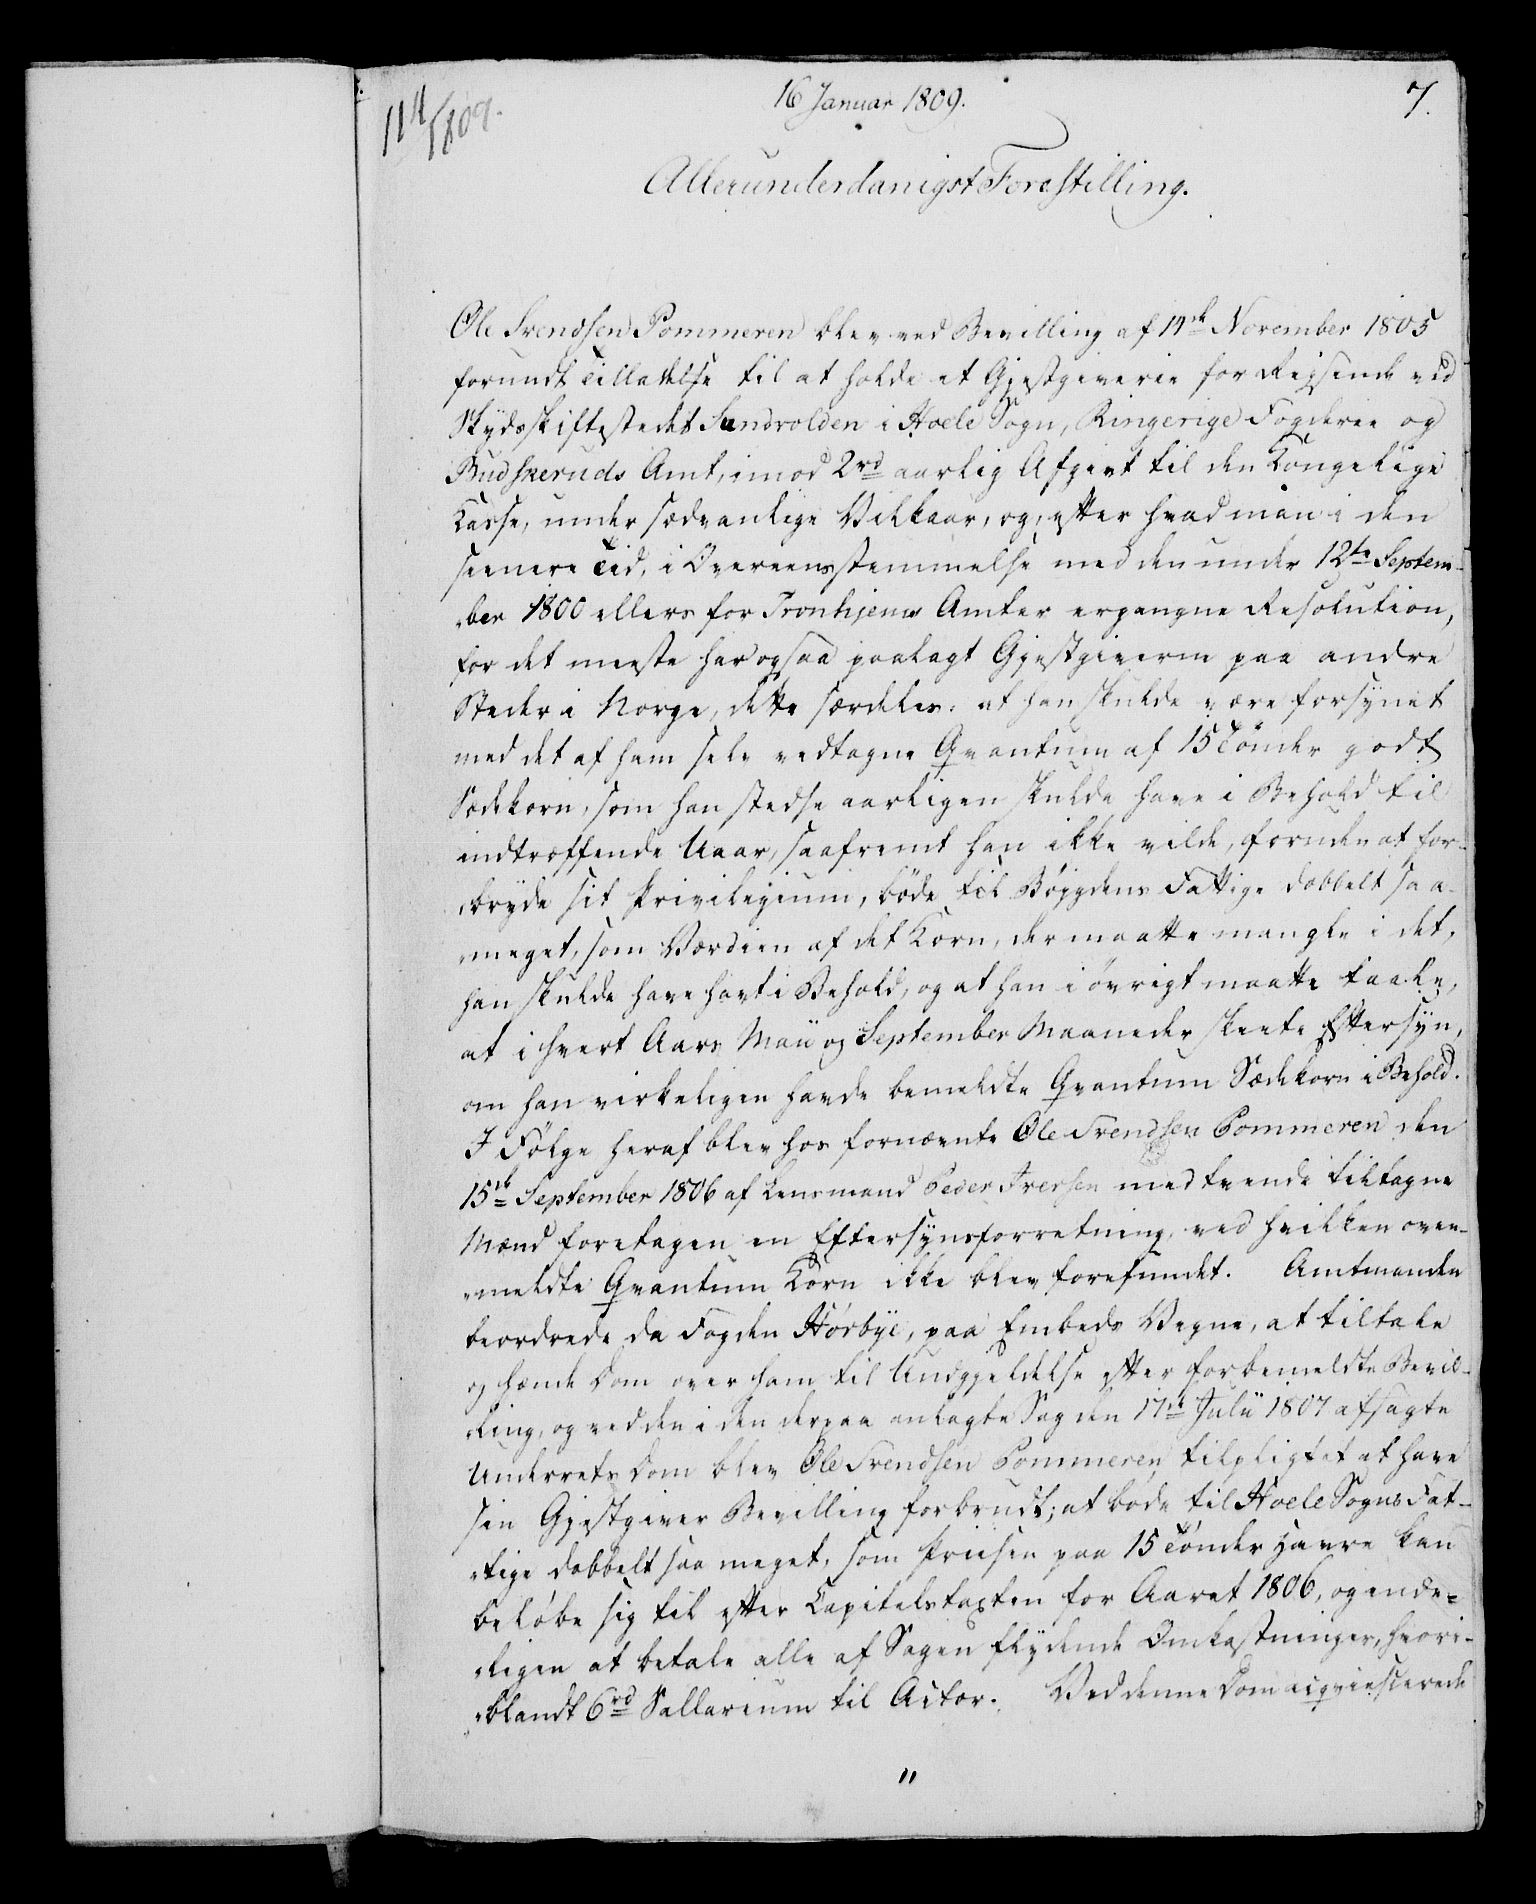 114/1809.
16 Januar 1809.
7.
Allerunderdanigst Forestilling.
Ole Svendsen Pommeren blev ved Bevilling af 14de November 1805
forundt Tilladelse til at holde et Gjestgiverie for Reisende ved
Skydsskiftestedet Sundvolden i Hoele Sogn, Ringerige Fogderie og
Budskeruds Amt, imod 2rd aarlig Afgivt til den Kongelige
Kasse, under sædvanlige Vilkaar, og, efter hvad man i den
seenere Tid, i Overeensstemmelse med den under 12te Septem-
-ber 1800 ellers for Tronhjems Amter ergangne Resolution,
for det meeste har ogsaa paalagt Gjestgiverne paa andre
Steder i Norge, dette særdeles: at han skulde være forsynet
med det af ham selv vedtagne Qvantum af 15 Tönder godt
Sædekorn, som han stedse aarligen skulde have i Behold til
indtræffende Uaar, saafremt han ikke vilde, foruden at for-
-bryde sit Privilegium, böde til Böygdens Fattige dobbelt saa-
-meget, som Værdien af det Korn, der maatte mangle i det,
han skulde have havt i Behold, og at han i övrigt maatte taale,
at i hvert Aars Maii og September Maaneder skeete Eftersyn,
om han virkeligen havde bemeldte Qvantum Sædekorn i Behold.
I Fölge heraf blev hos fornævnte Ole Svendsen Pommeren den
15de September 1806 af Lensmand Peder Iversen med tvende tiltagne
Mænd foretagen en Eftersynsforretning, ved hvilken oven-
-meldte Qvantum Korn ikke blev forefundet. Amtmanden
beordrede da Fogden Hörbye, paa Embeds Vegne, at tiltale
og hænde Dom over ham til Undgjeldelse efter forbemeldte Bevil-
-ling, og ved den i den derpaa anlagte Sag den 17de Julii 1807 afsagte
Underrets Dom blev Ole Svendsen Pommeren tilpligtet at have
sin Gjestgiver Bevilling forbrudt; at bøde til Hoele Sogns Fat-
-tige dobbelt saa meget, som Priisen paa 15 Tönder Havre kan
belöbe sig til efter Capitelstaxten for Aaret 1806, og ende-
-ligen at betale alle af Sagen flydende Omkostninger, hvori-
-blandt 6rd Sallarium til Actor. Ved denne Dom acqviescerede
"